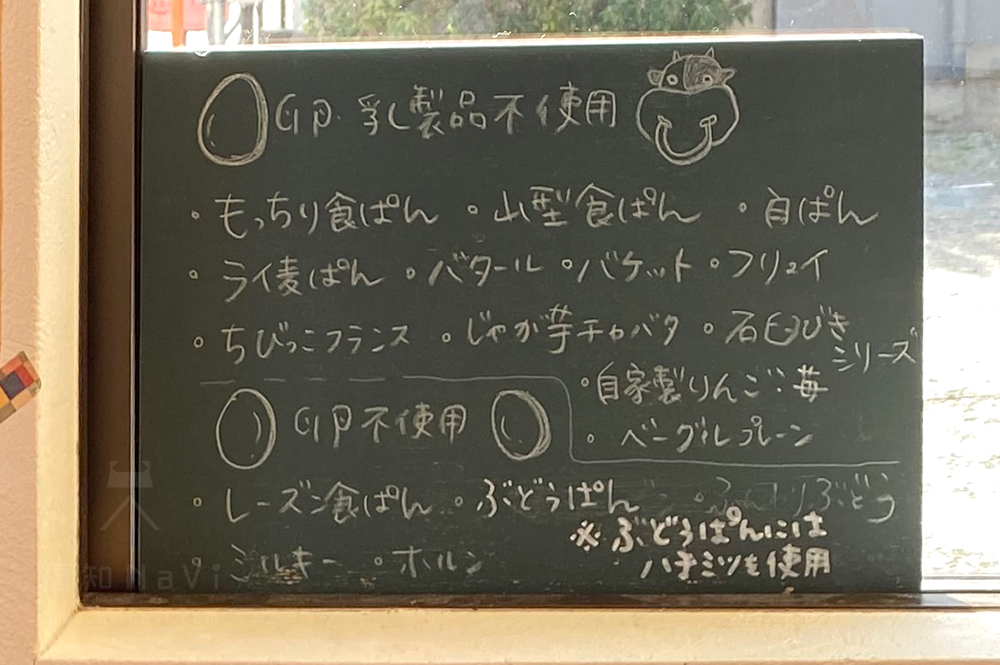 卵 乳製品不使用
・もっちり食ぱん ・山型食ぱん ・白ぱん
・ライ麦ぱん ・バタール ・バケット ・フリュイ
・ちびっこフランス ・じゃが芋チャバタ ・石臼びきシリーズ
・自家製りんご・苺
・ベーグルプレーン
卵不使用
・レーズン食ぱん ・ぶどうぱん ・ ぶどう
・ミルキー ・ホルン
※ぶどうぱんには
ハチミツを使用
知NaVi